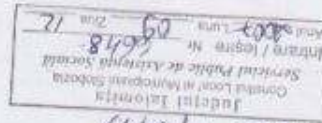 Județul Ialomița
Consiliul Local al Municipiului Slobozia
Serviciul Public de Asistență Socială
Intrare / Ieșire Nr. 6648
Anul 2007 Luna 09 Ziua 12